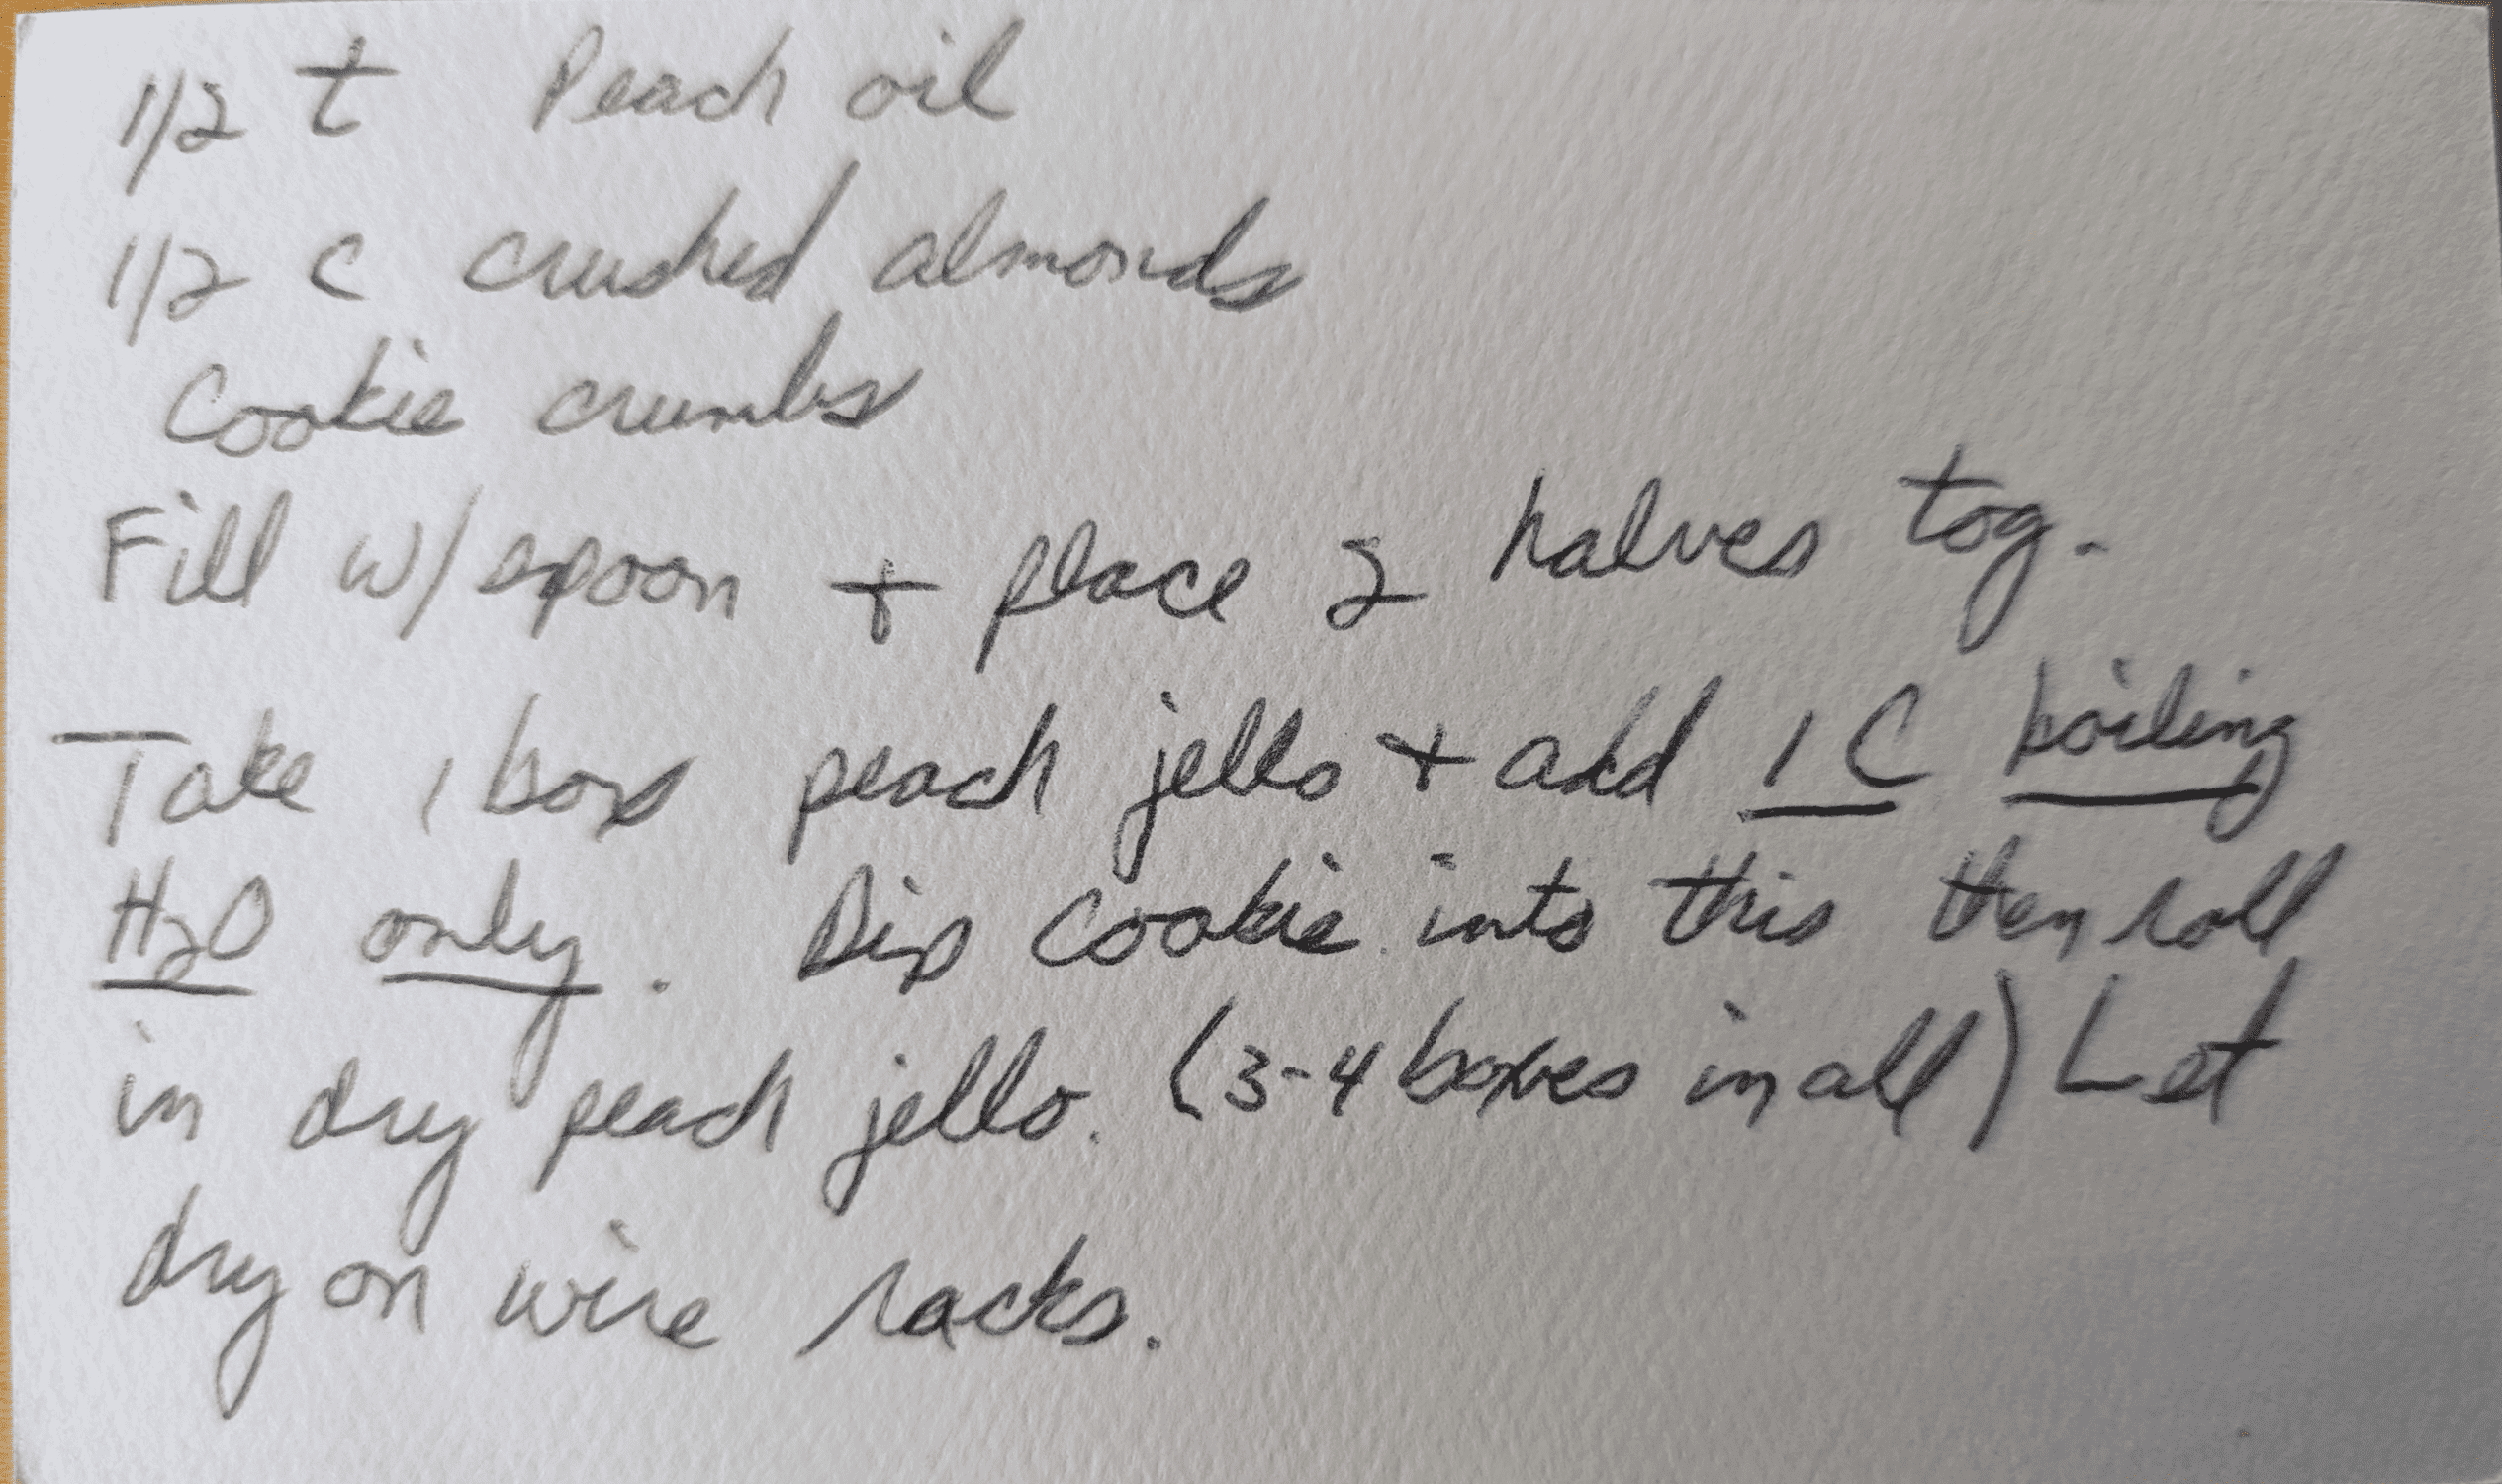 1/2 t Peach oil
1/2 c crushed almonds
Cookie crumbs
Fill w/ spoon + place 2 halves tog.
Take 1 box peach jello + add 1 C boiling
H2O only. Dip Cookie into this then roll
in dry peach jello. (3-4 boxes in all) Let
dry on wire racks.